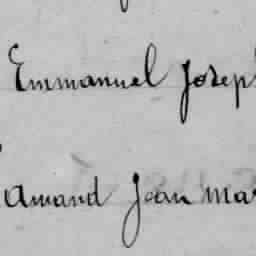 Emmanuel Joseph
Amand Jean Mar